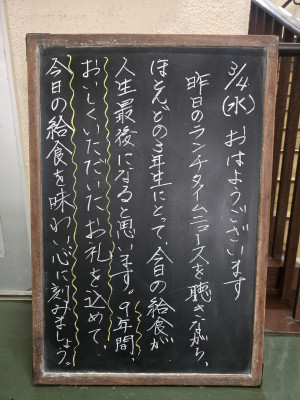 3/4(水) おはようございます
昨日のランチタイムニュースを聴きながら、
ほとんどの3年生にとって、今日の給食が
人生最後になると思います。9年間、
おいしくいただいたお礼を込めて、
今日の給食を味わい心に刻みましょう。